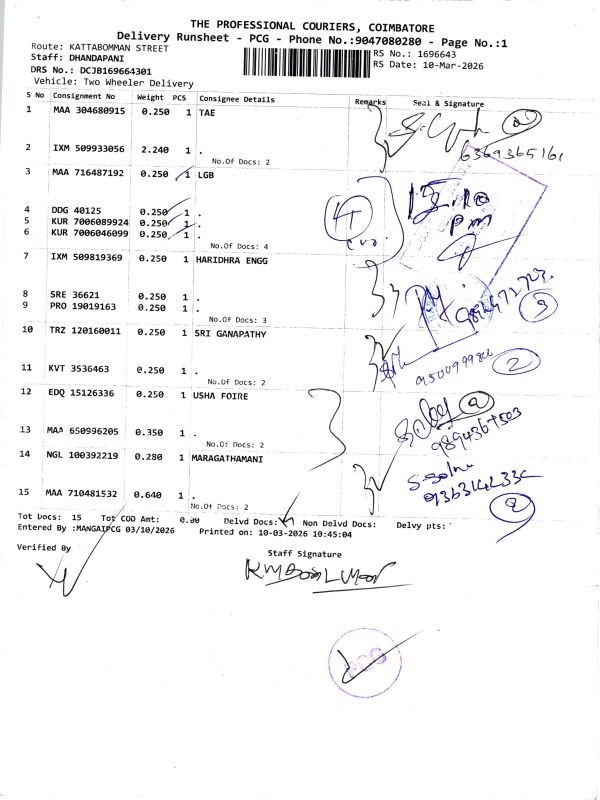 THE PROFESSIONAL COURIERS, COIMBATORE
Delivery Runsheet - PCG - Phone No.:9047080280 - Page No.:1
Route: KATTABOMMAN STREET
RS No.: 1696643
Staff: DHANDAPANI
RS Date: 10-Mar-2026
DRS No.: DCJB169664301
Vehicle: Two Wheeler Delivery
S No Consignment No Weight PCS Consignee Details Remarks Seal & Signature
1 MAA 304680915 0.250 1 TAE
2 IXM 509933056 2.240 1 .
6369365161
No.Of Docs: 2
3 MAA 716487192 0.250 1 LGB
4 DDG 40125 0.250 1 .
5 KUR 7006089924 0.250 1 .
6 KUR 7006046099 0.250 1 .
pm
No.Of Docs: 4
7 IXM 509819369 0.250 1 HARIDHRA ENGG
8 SRE 36621 0.250 1 .
9 PRO 19019163 0.250 1 .
3
No.Of Docs: 3
10 TRZ 120160011 0.250 1 SRI GANAPATHY
2
11 KVT 3536463 0.250 1 .
No.Of Docs: 2
12 EDQ 15126336 0.250 1 USHA FOIRE
13 MAA 650996205 0.350 1 .
No.Of Docs: 2
14 NGL 100392219 0.280 1 MARAGATHAMANI
15 MAA 710481532 0.640 1 .
No.Of Docs: 2
Tot Docs: 15 Tot COD Amt: 0.00 Delvd Docs: Non Delvd Docs: Delvy pts:
Entered By :MANGAIPCG 03/10/2026 Printed on: 10-03-2026 10:45:04
Verified By
Staff Signature
PCG